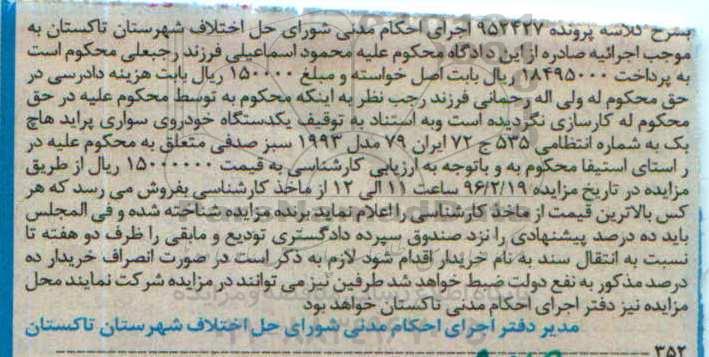 بشرح کلاسه پرونده ۹۵۲۴۲۷ اجرای احکام مدنی شورای حل اختلاف شهرستان تاکستان به
موجب اجرائیه صادره از این دادگاه محکوم علیه محمود اسماعیلی فرزند رجبعلی محکوم است
به پرداخت ۱۸۴۹۵۰۰۰ ریال بابت اصل خواسته و مبلغ ۱۵۰۰۰۰ ریال بابت هزینه دادرسی در
حق محکوم له ولی اله رحمانی فرزند رجب نظر به اینکه محکوم به توسط محکوم علیه در حق
محکوم له کارسازی نگردیده است وبه استناد به توقیف یکدستگاه خودروی سواری پراید هاچ
بک به شماره انتظامی ۵۳۵ ج ۷۲ ایران ۷۹ مدل ۱۹۹۳ سبز صدفی متعلق به محکوم علیه در
ر استای استیفا محکوم به و باتوجه به ارزیابی کارشناسی به قیمت ۱۵۰۰۰۰۰۰ ریال از طریق
مزایده در تاریخ مزایده ۹۶/۲/۱۹ ساعت ۱۱ الی ۱۲ از ماخذ کارشناسی بفروش می رسد که هر
کس بالاترین قیمت از ماخذ کارشناسی را اعلام نماید برنده مزایده شناخته شده و فی المجلس
باید ده درصد پیشنهادی را نزد صندوق سپرده دادگستری تودیع و مابقی را ظرف دو هفته تا
نسبت به انتقال سند به نام خریدار اقدام شود لازم به ذکر است در صورت انصراف خریدار ده
درصد مذکور به نفع دولت ضبط خواهد شد طرفین نیز می توانند در مزایده شرکت نمایند محل
مزایده نیز دفتر اجرای احکام مدنی تاکستان خواهد بود
مدیر دفتر اجرای احکام مدنی شورای حل اختلاف شهرستان تاکستان
۳۵۲